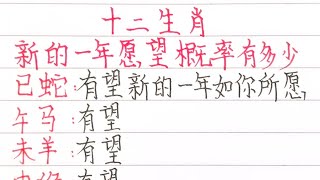 十二生肖
新的一年愿望概率有多少
巳蛇:有望新的一年如你所愿,
午马:有望
未羊:有望